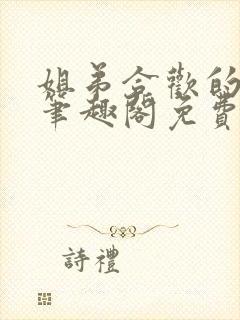 姐弟合歡的
筆趣閣免費
詩禮